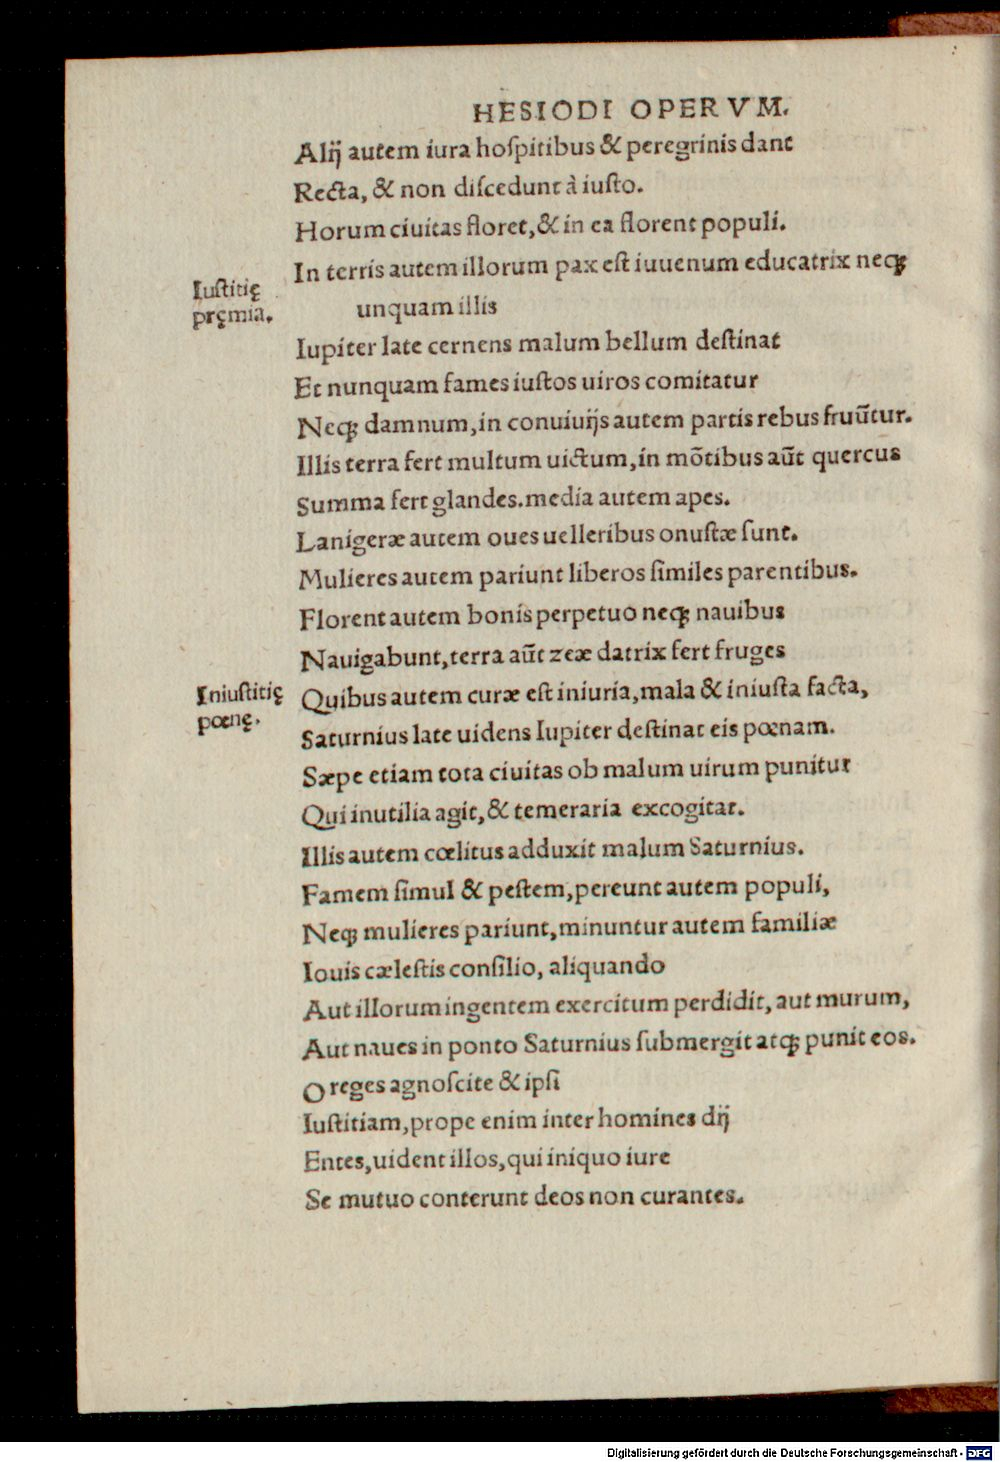 HESIODI OPERVM.
Alij autem iura hoſpitibus & peregrinis dant
Recta, & non diſcedunt à iuſto.
Horum ciuitas floret, & in ea florent populi.
In terris autem illorum pax eſt iuuenum educatrix neqꝫ
unquam illis
Iuſtitię
pręmia.
Iupiter late cernens malum bellum deſtinat
Et nunquam fames iuſtos uiros comitatur
Neqꝫ damnum, in conuiuijs autem partis rebus fruũtur.
Illis terra fert multum uictum, in mõtibus aũt quercus
Summa fert glandes. media autem apes.
Lanigeræ autem oues uelleribus onuſtæ ſunt.
Mulieres autem pariunt liberos ſimiles parentibus.
Florent autem bonis perpetuo neqꝫ nauibus
Nauigabunt, terra aũt zeæ datrix fert fruges
Iniuſtitię
pœnę.
Quibus autem curæ eſt iniuria, mala & iniuſta facta,
Saturnius late uidens Iupiter deſtinat eis pœnam.
Sæpe etiam tota ciuitas ob malum uirum punitur
Qui inutilia agit, & temeraria excogitat.
Illis autem cœlitus adduxit malum Saturnius.
Famem ſimul & peſtem, pereunt autem populi,
Neqꝫ mulieres pariunt, minuntur autem familiæ
Iouis cæleſtis conſilio, aliquando
Aut illorum ingentem exercitum perdidit, aut murum,
Aut naues in ponto Saturnius ſubmergit atqꝫ punit eos.
O reges agnoſcite & ipſi
Iuſtitiam, prope enim inter homines dij
Entes, uident illos, qui iniquo iure
Se mutuo conterunt deos non curantes.
Digitalisierung gefördert durch die Deutsche Forschungsgemeinschaft - DFG